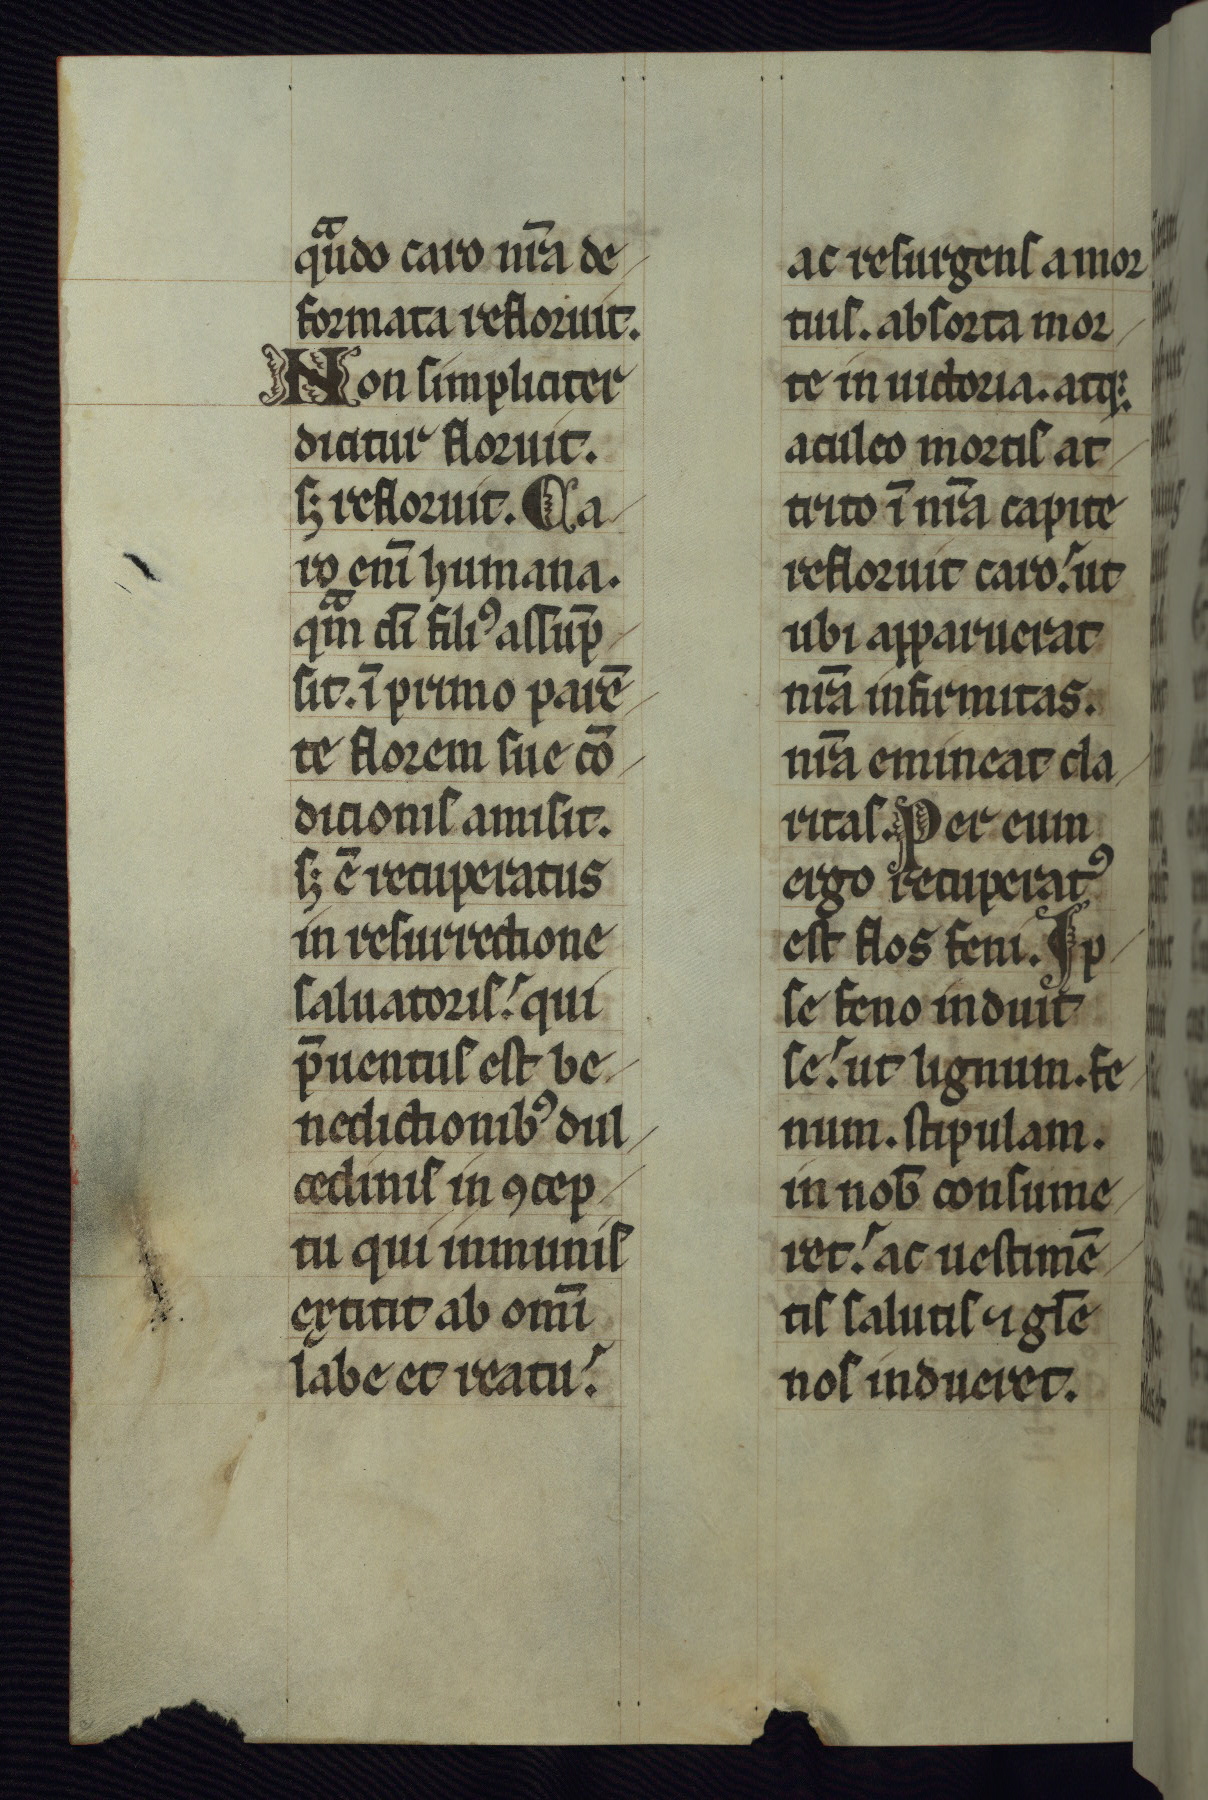 qᵃndo caro nr̄a de
formata refloruit.
Non simpliciter
dicitur floruit.
sꝫ refloruit. Ca
ro eni̅ humana.
qᵃm di̅ filiꝰ assu̅p
sit. i̅ primo pare̅
te florem sue co̅
dicionis amisit.
sꝫ e̅ recuperatus
in resurrectione
saluatoris. qui
p̅uentus est be
nedictionibꝰ dul
cedinis in ꝯcep
tu qui inmunis
extitit ab om̅i
labe et reatu.
ac resurgens a mor
tuis. absorta mor
te in uictoria. atqꝫ.
aculeo mortis at
trito i̅ nr̄a capite
refloruit caro. ut
ubi apparuerat
nr̄a infirmitas.
nr̄a emineat cla
ritas. Per eum
ergo recuperatꝰ
est flos feni. Ip
se feno induit
se. ut lignum. fe
num. stipulam.
in nob̅ consume
ret. ac uestime̅
tis salutis ⁊ gl̅e
nos indueret.